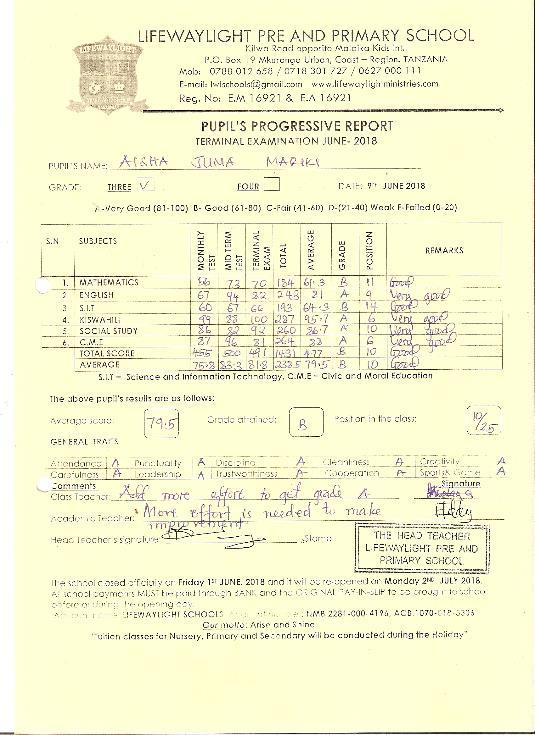 LIFEWAYLIGHT
LIFEWAYLIGHT PRE AND PRIMARY SCHOOL
Kilwa Road opposite Malaika Kids Int.
P.O. Box 19 Mkuranga Urban, Coast – Region, TANZANIA
Mob: 0788 012 658 / 0718 301 727 / 0627 000 111
E-mail: lwlschools@gmail.com www.lifewaylightministries.com
Reg. No: E.M 16921 & E.A 16921
PUPIL'S PROGRESSIVE REPORT
TERMINAL EXAMINATION JUNE- 2018
PUPIL'S NAME: AISHA JUMA MARIKI
GRADE: THREE V FOUR DATE: 9TH JUNE 2018
A-Very Good (81-100) B- Good (61-80) C-Fair (41-60) D-(21-40) Weak E-Failed (0-20)
S.N SUBJECTS MONTHLY TEST MID TERM TEST TERMINAL EXAM TOTAL AVERAGE GRADE POSITION REMARKS
1. MATHEMATICS 73 70 184 61.3 B 11 Good
2 ENGLISH 67 94 82 243 81 A 9 Very good
3 S.I.T 60 67 66 193 64.3 B 14 Good
4. KISWAHILI 99 88 100 287 95.7 A 6 Very good
5 SOCIAL STUDY 86 82 92 260 86.7 A 10 Very good
6. C.M.E 87 96 81 264 88 A 6 Very good
TOTAL SCORE 455 500 491 1431 477 B 10 Good
AVERAGE 75.8 83.3 81.8 79.5 B 10 Good
S.I.T – Science and Information Technology, C.M.E – Civic and Moral Education
The above pupil's results are as follows:
Average score: 79.5 Grade attained: B Position in the class: 10/25
GENERAL TRAITS
Attendance A Punctuality A Discipline A Cleanness A Creativity A
Carefulness A Leadership A Trustworthiness A Cooperation A Sports & Game A
Comments Signature
Class Teacher: Add more effort to get grade A
Academic Teacher: More effort is needed to make
improvement
Head Teacher's signature Stamp
THE HEAD TEACHER
LIFEWAYLIGHT PRE AND
PRIMARY SCHOOL
The school closed officially on Friday 1ST JUNE, 2018 and it will be re-opened on Monday 2ND JULY 2018.
All school payments MUST be paid through BANK and the ORIGINAL PAY-IN-SLIP to be brought to school
before or during the opening day.
LIFEWAYLIGHT SCHOOLS NMB 2281-000-4196, ACB.1070-018-5306
Our motto: Arise and Shine
"Tuition classes for Nursery, Primary and Secondary will be conducted during the Holiday"